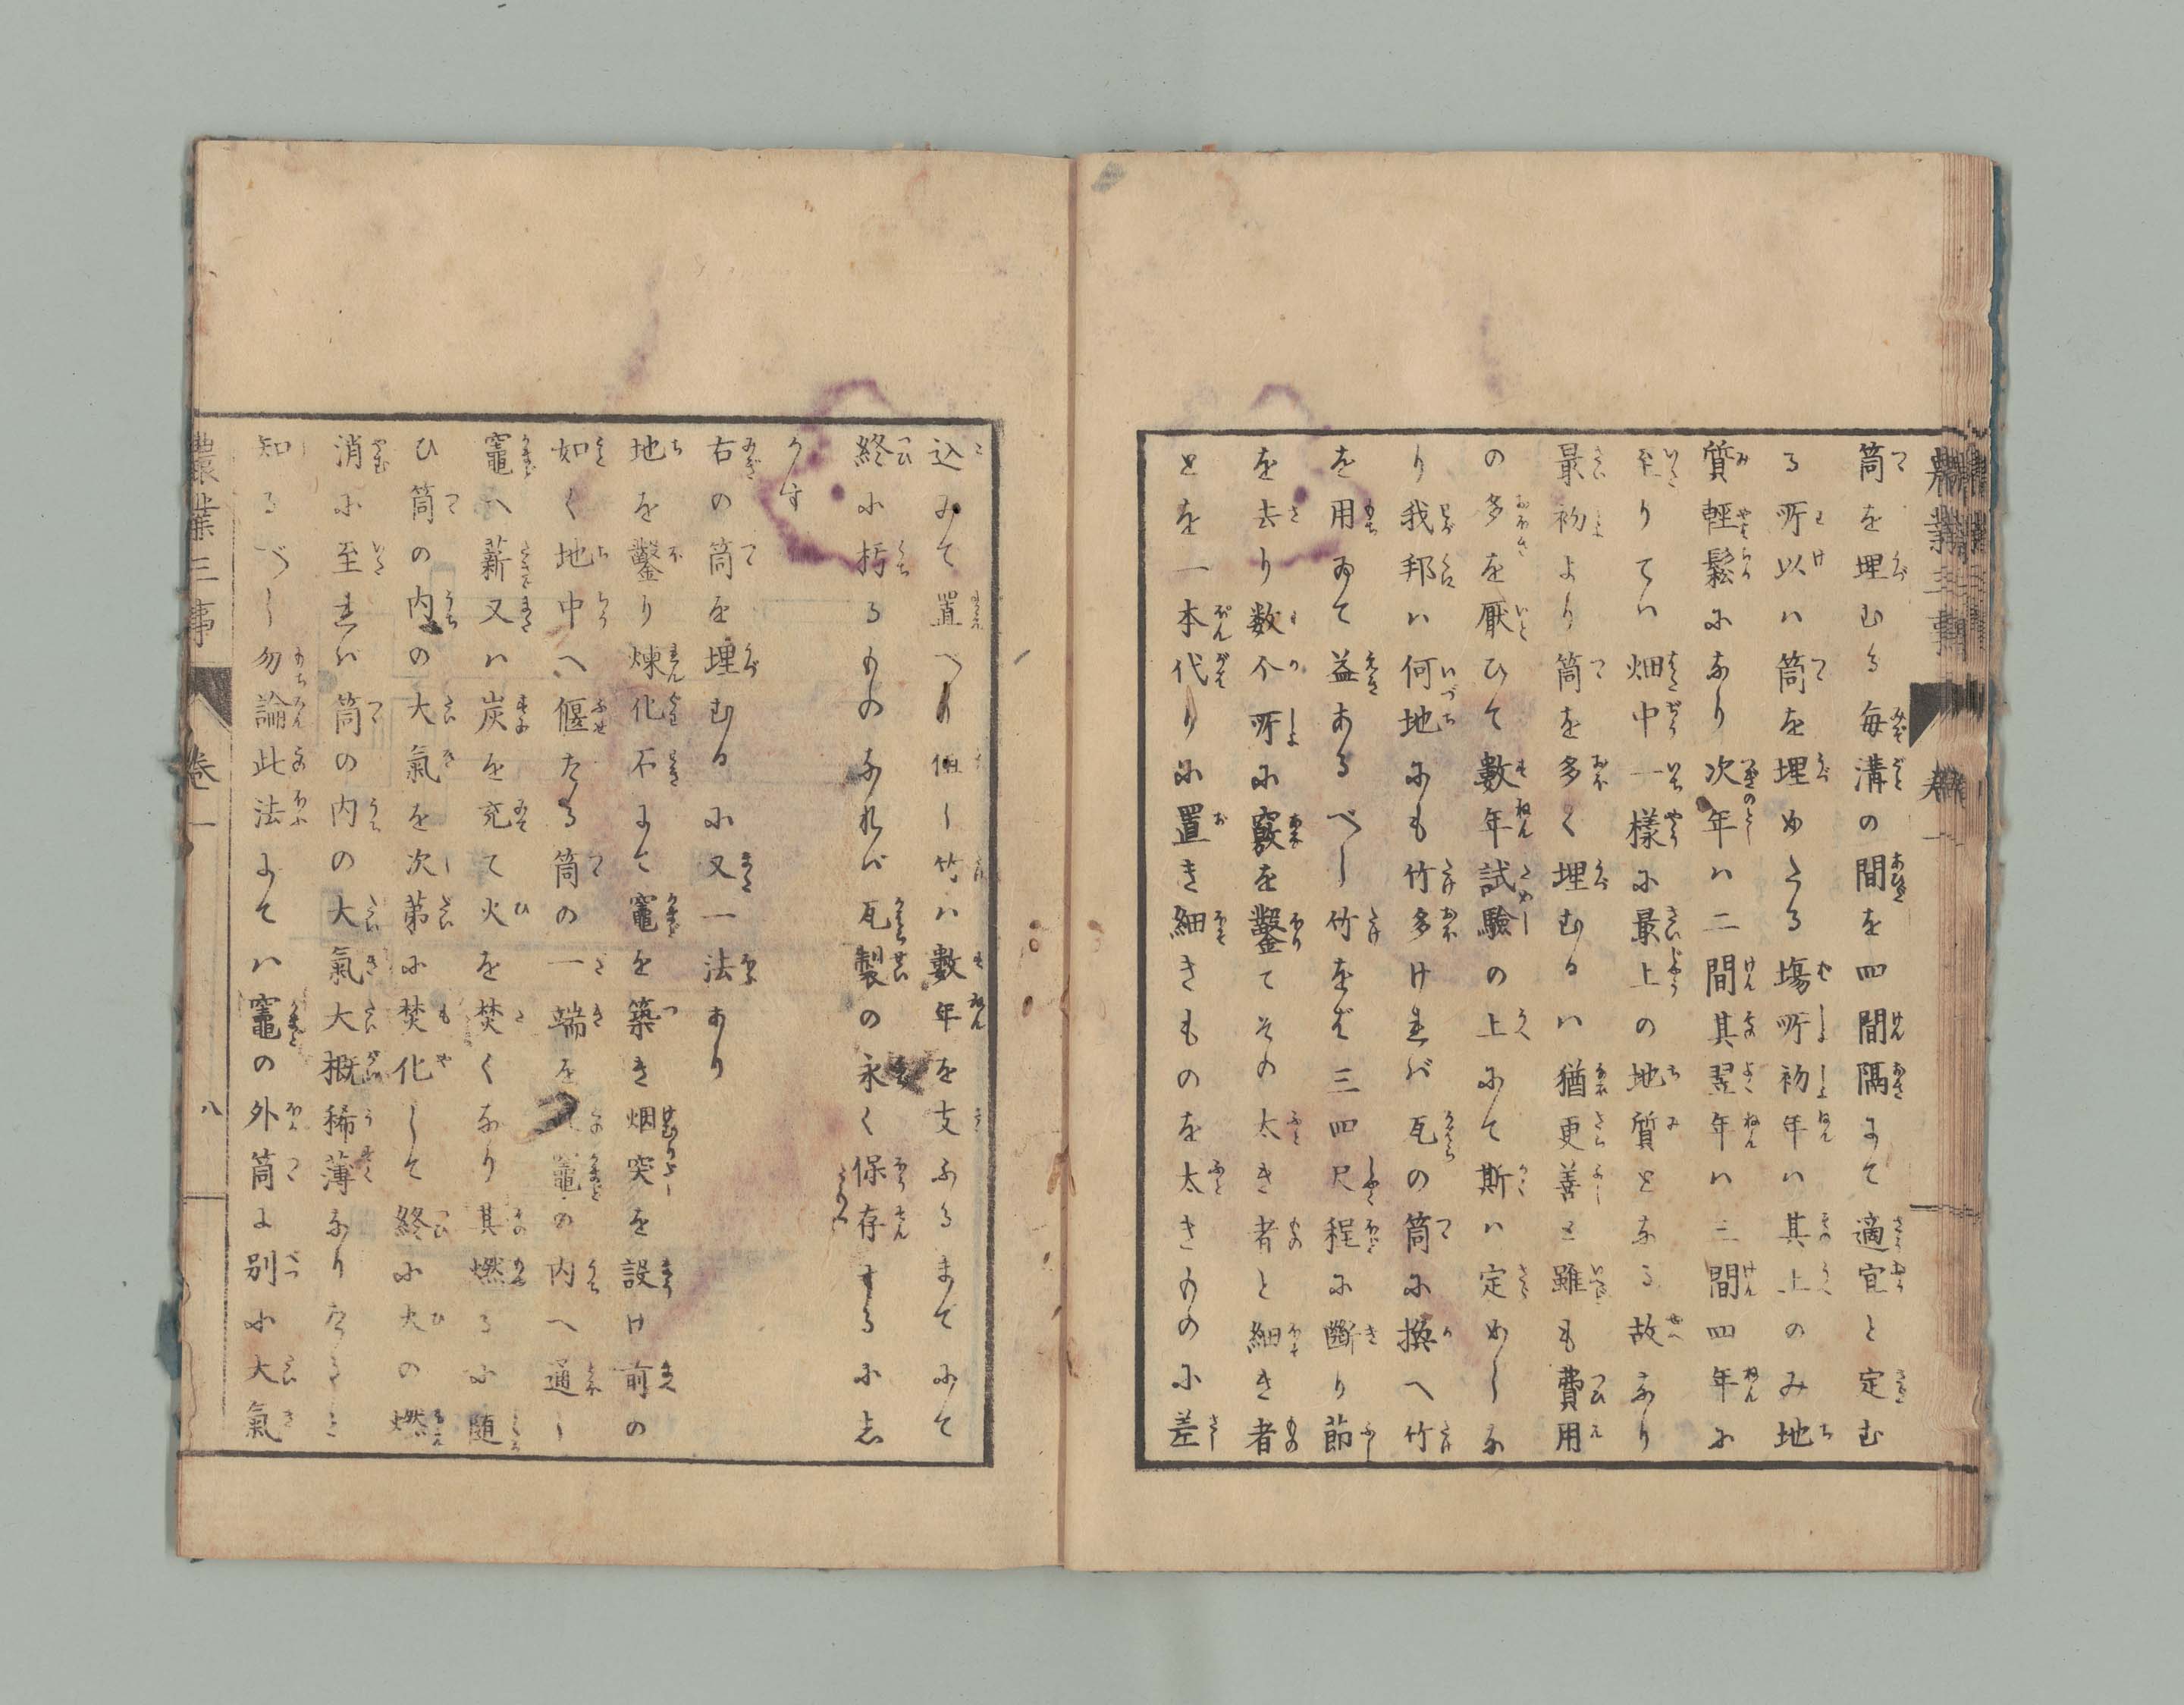 筒を埋むる毎溝の間を四間隔にて適宜と定む
る所以ハ筒を埋めたる場所初年ハ其上のみ地
質輕鬆になり次年ハ二間其翌年ハ三間四年に
至りてハ畑中一樣に最上の地質となる故なり
最初より筒を多く埋むるハ猶更善と雖も費用
の多を厭ひて數年試驗の上にて斯ハ定めしな
り我邦ハ何地にも竹多けれバ瓦の筒に換へ竹
を用ゐて益あるべし竹をバ三四尺程に斷り節
を去り数个所に竅を鑿てその太き者と細き者
とを一本代りに置き細きものを太きものに差
込みて置べし但し竹ハ數年を支ふるまでにて
終に朽るものなれバ瓦製の永く保存するに志
かず
右の筒を埋むるに又一法あり
地を鑿り煉化石にて竈を築き烟突を設け前の
如く地中へ偃たる筒の一端を竈の内へ通し
竈へ薪又ハ炭を充て火を焚くなり其燃るに随
ひ筒の内の大氣を次第に焚化して終に火の燃
消に至れバ筒の内の大氣大概稀薄なりたると
知るべし勿論此法にてハ竈の外筒に別に大氣
農業三事 卷一 八